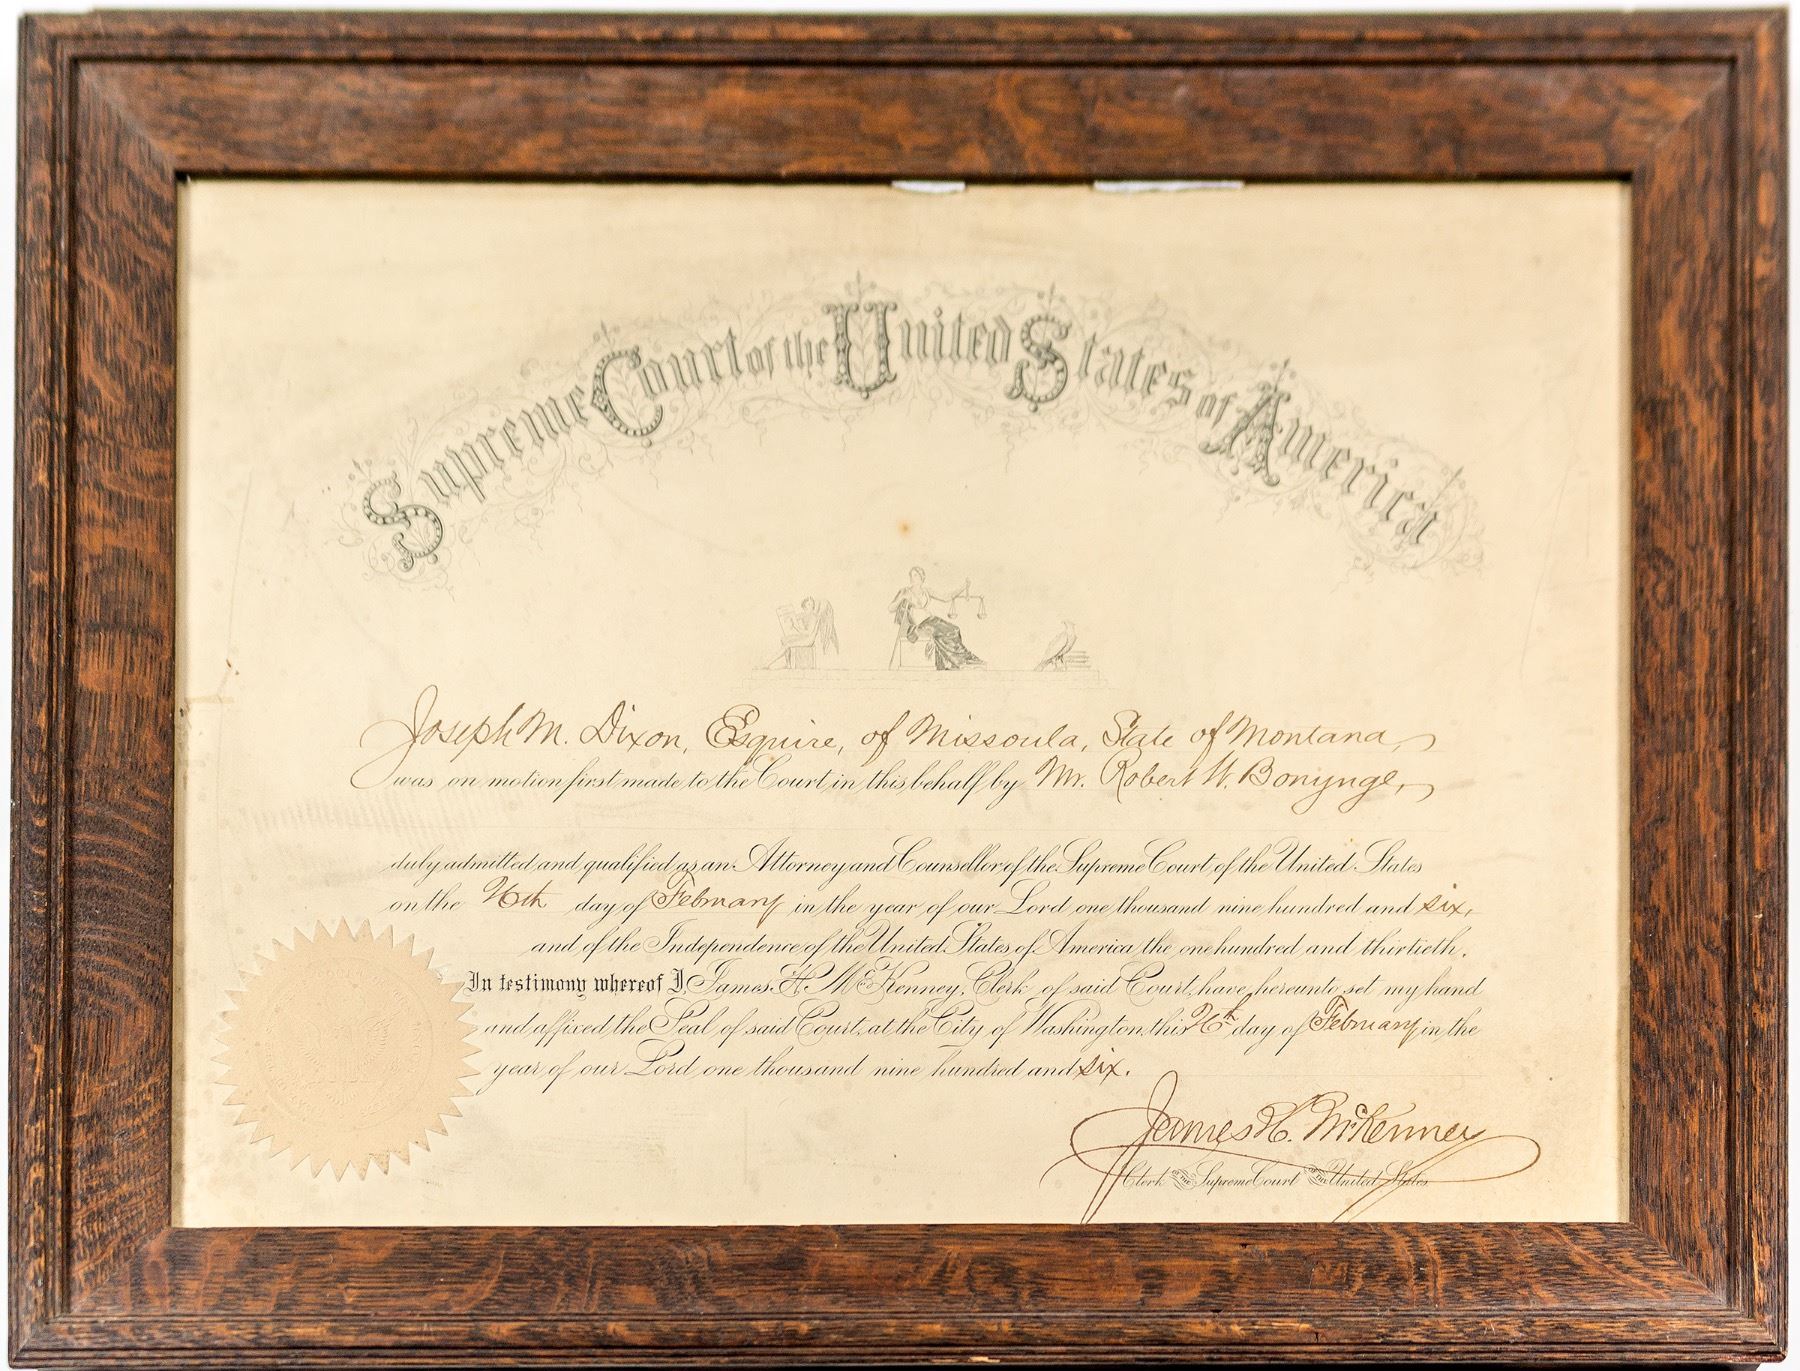 Supreme Court of the United States of America
Joseph M. Dixon, Esquire, of Missoula, State of Montana,
was on motion first made to the Court in this behalf by Mr. Robert W. Bonynge,
duly admitted and qualified as an Attorney and Counsellor of the Supreme Court of the United States
on the 26th day of February in the year of our Lord one thousand nine hundred and six,
and of the Independence of the United States of America the one hundred and thirtieth.
In testimony whereof I, James H. McKenney, Clerk of said Court, have hereunto set my hand
and affixed the Seal of said Court, at the City of Washington, this 26th day of February in the
year of our Lord one thousand nine hundred and six.
James H. McKenney
Clerk of the Supreme Court of the United States